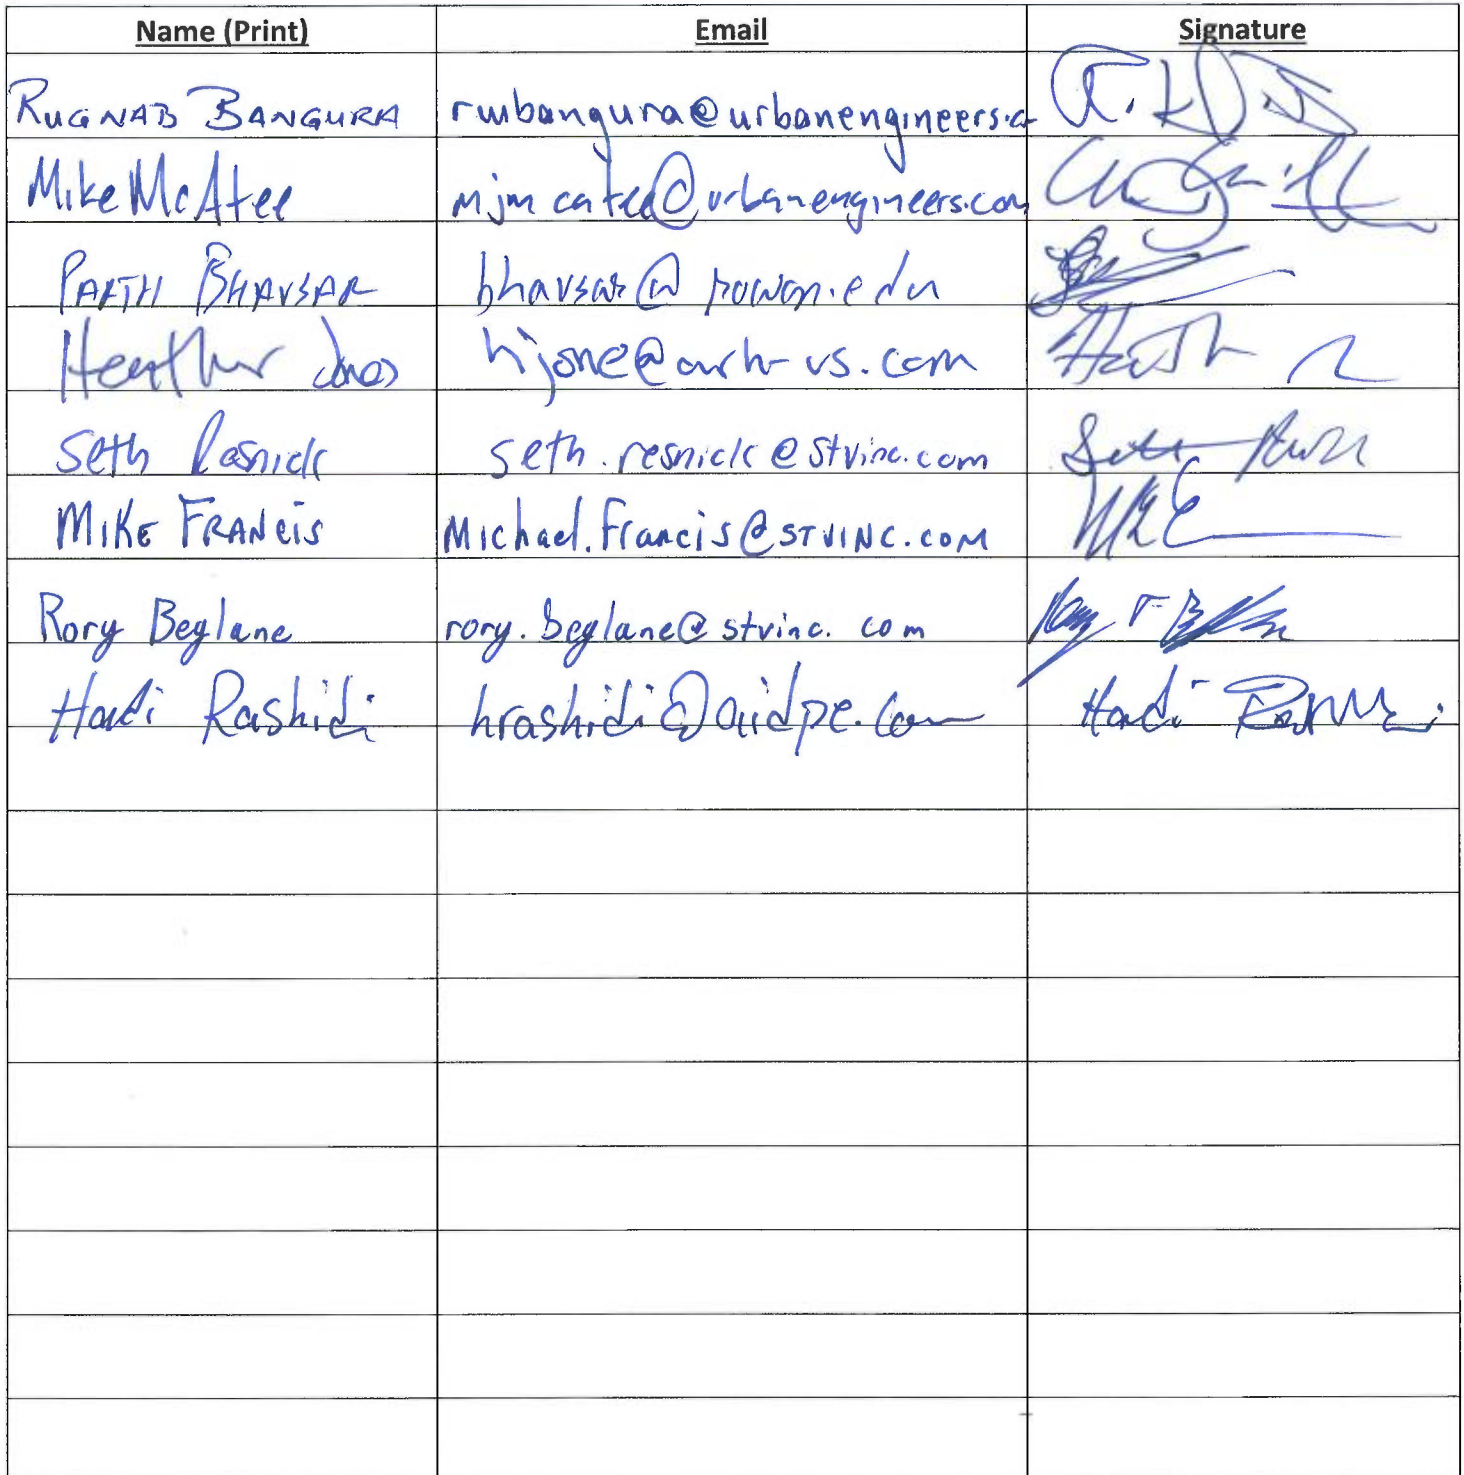 Name (Print) Email Signature
RUGNAB BANGURA rwbangura@urbanengineers.c
Mike McAtee mjmcatee@urbanengineers.com
PARTH BHAVSAR bhavsar@rowan.edu
Heather Jones
Seth Resnick seth.resnick@stvinc.com
MIKE FRANCIS Michael.Francis@STVINC.COM
Rory Beglane rory.beglane@stvinc.com
Hadi Rashidi hrashidi@aidpe.com Hadi